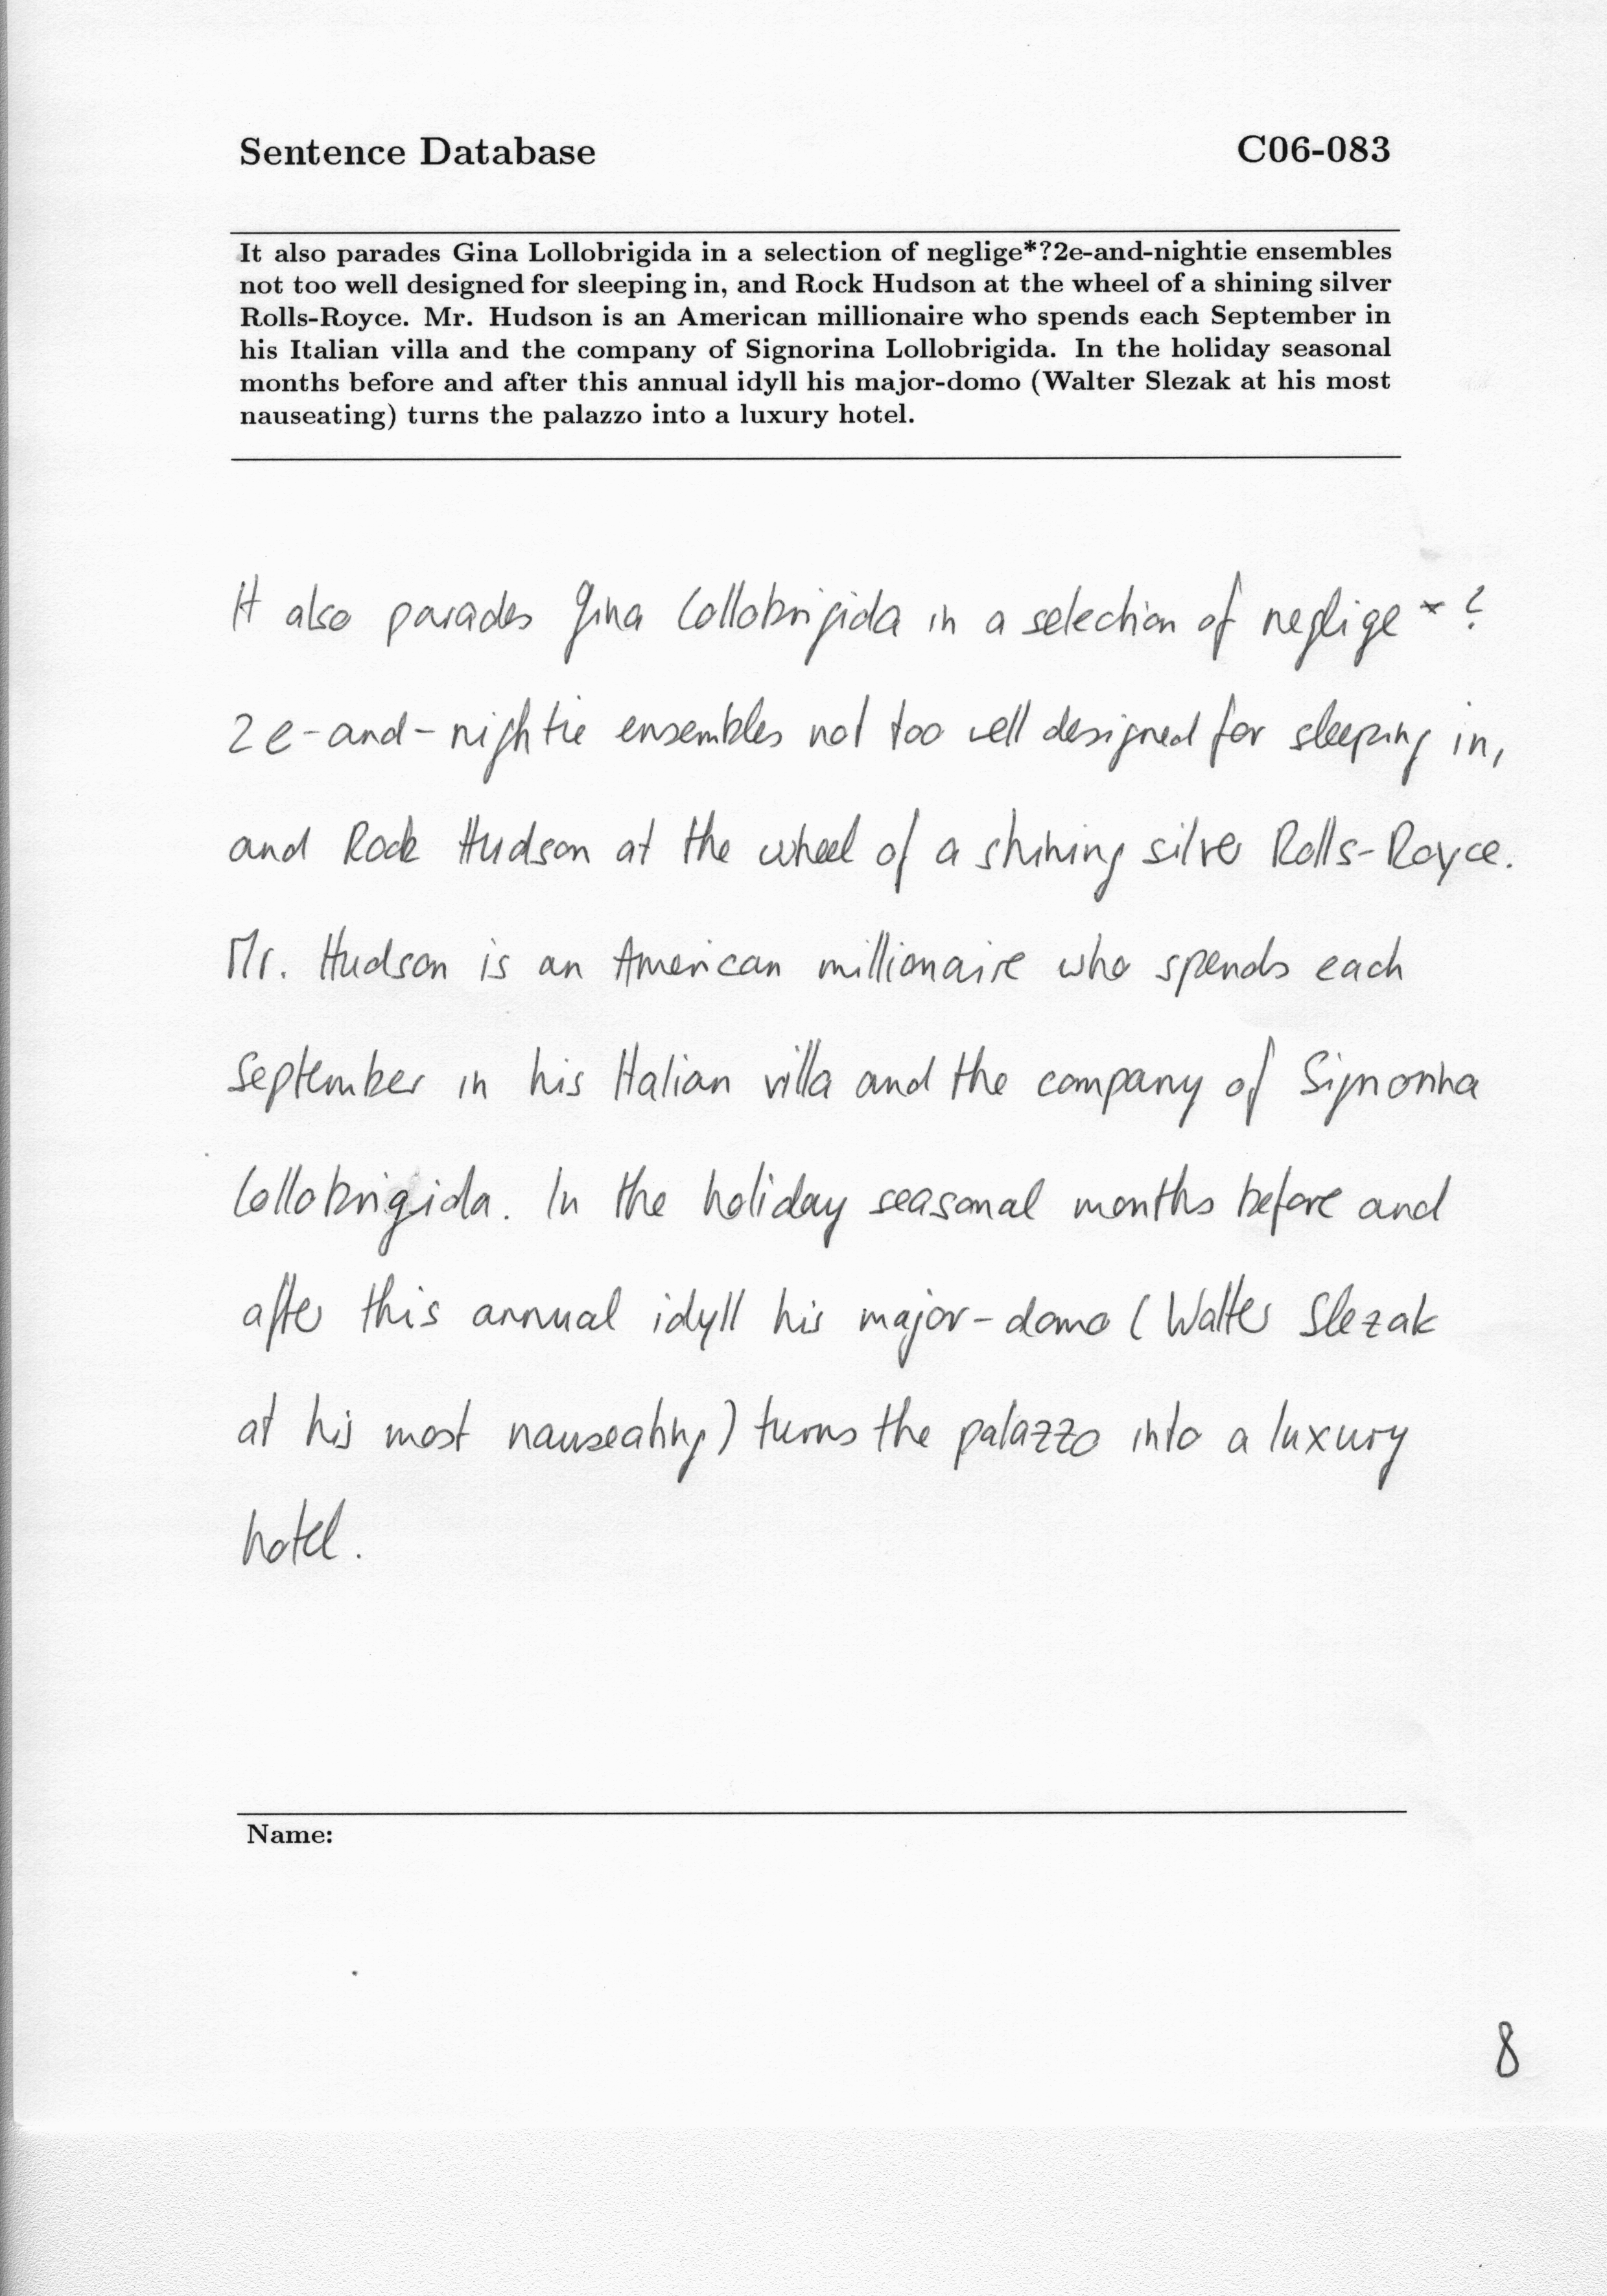 Sentence Database C06-083
It also parades Gina Lollobrigida in a selection of neglige*?2e-and-nightie ensembles
not too well designed for sleeping in, and Rock Hudson at the wheel of a shining silver
Rolls-Royce. Mr. Hudson is an American millionaire who spends each September in
his Italian villa and the company of Signorina Lollobrigida. In the holiday seasonal
months before and after this annual idyll his major-domo (Walter Slezak at his most
nauseating) turns the palazzo into a luxury hotel.
It also parades Gina Lollobrigida in a selection of neglige*?
2e-and-nightie ensembles not too well designed for sleeping in,
and Rock Hudson at the wheel of a shining silver Rolls-Royce.
Mr. Hudson is an American millionaire who spends each
September in his Italian villa and the company of Signorina
Lollobrigida. In the holiday seasonal months before and
after this annual idyll his major-domo (Walter Slezak
at his most nauseating) turns the palazzo into a luxury
hotel.
Name:
8